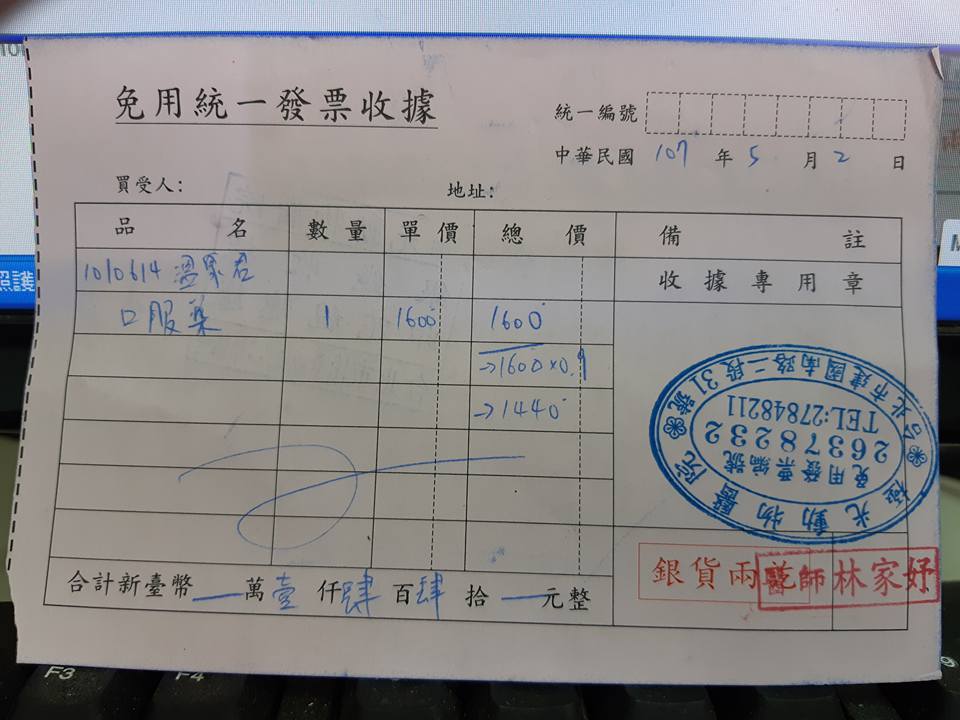 免用統一發票收據
統一編號
中華民國 107 年 5 月 2 日
買受人: 地址:
品名 數量 單價 總價 備註
1010614 溫家君 收據專用章
口服藥 1 1600 1600
→1600×0.9
→1440
極光動物醫院
台北市建國南路二段31號
免用發票編號
26378232
TEL:27848211
銀貨兩訖
醫師林家妤
合計新臺幣 萬壹仟肆百肆拾 元整
F3 F4